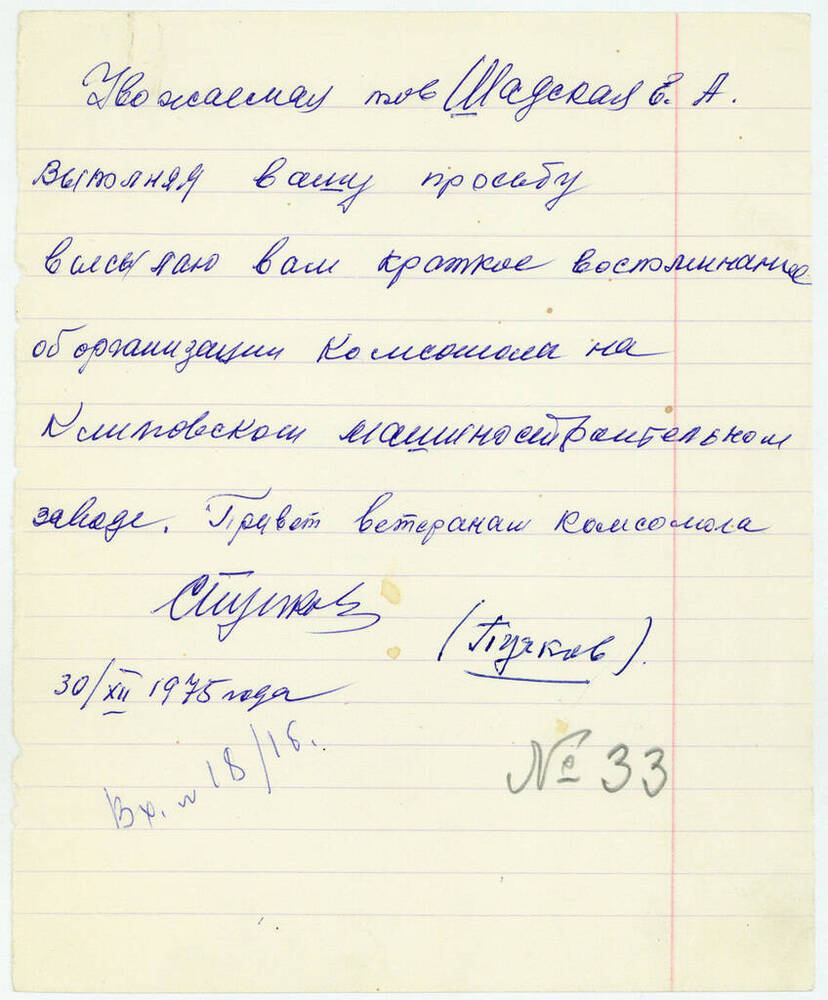 Уважаемая тов Шадская Е. А.
Выполняя вашу просьбу
высылаю вам краткое воспоминание
об организации комсомола на
Климовском машиностроительном
заводе. Привет ветеранам комсомола
(Пучков).
30/XII 1975 года
Вх. № 18/16.
№ 33